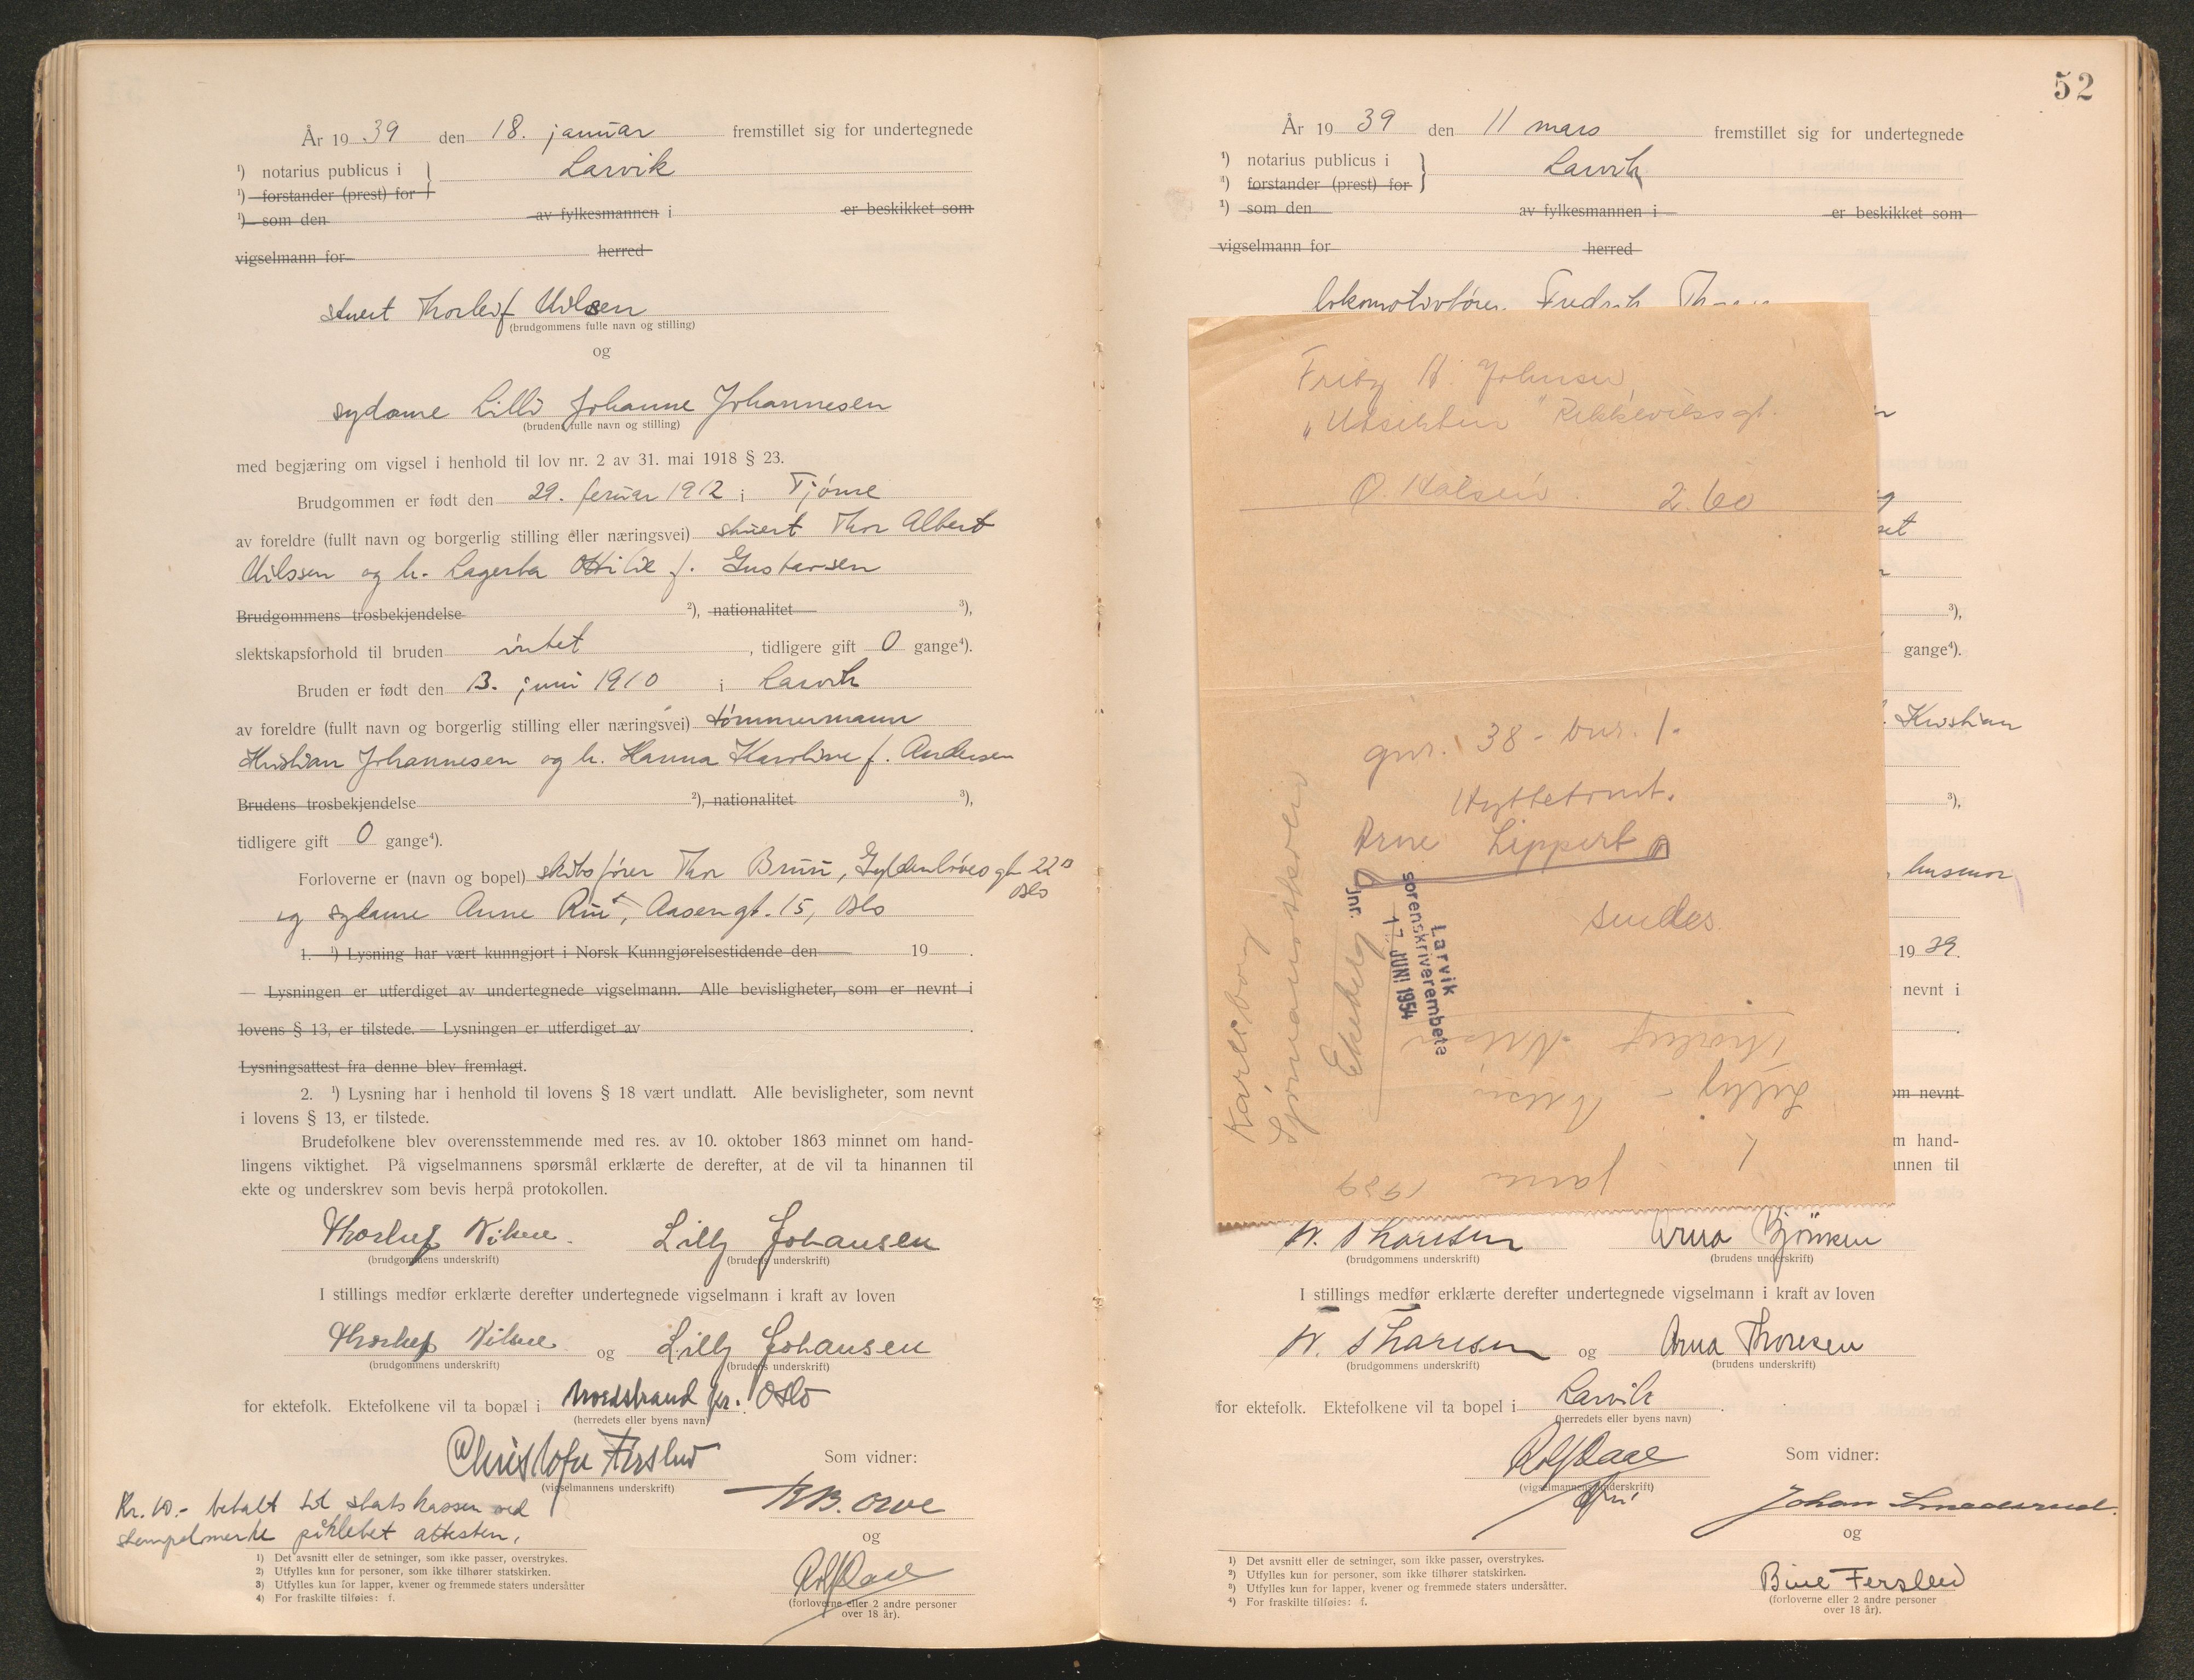 År 19 39 den 18. januar fremstillet sig for undertegnede
¹) notarius publicus i } Larvik
¹) forstander (prest) for
¹) som den av fylkesmannen i er beskikket som
vigselmann for herred
stuert Thorleif Nilsen
(brudgommens fulle navn og stilling)
og
sydame Lilli Johanne Johannesen
(brudens fulle navn og stilling)
med begjæring om vigsel i henhold til lov nr. 2 av 31. mai 1918 § 23.
Brudgommen er født den 29. feruar 1912 i Tjøme
av foreldre (fullt navn og borgerlig stilling eller næringsvei) stuert Thor Albert
Nilssen og h. Lagerta Ottilie f. Gustavsen
Brudgommens trosbekjendelse ²), nationalitet ³),
slektskapsforhold til bruden intet, tidligere gift 0 gange⁴).
Bruden er født den 13. juni 1910 i Larvik
av foreldre (fullt navn og borgerlig stilling eller næringsvei) tømmermann
Kristian Johannesen og h. Hanna Karoline f. Andersen
Brudens trosbekjendelse ²), nationalitet ³),
tidligere gift 0 gange⁴).
Forloverne er (navn og bopel) skibsfører Thor Bruu, Gyldenløves gt 22ᴮ
Oslo
og sydame Anne Ruu, Aasengt. 15, Oslo
1. ¹) Lysning har vært kunngjort i Norsk Kunngjørelsestidende den 19 .
— Lysningen er utferdiget av undertegnede vigselmann. Alle bevisligheter, som er nevnt i
lovens § 13, er tilstede. — Lysningen er utferdiget av .
Lysningsattest fra denne blev fremlagt.
2. ¹) Lysning har i henhold til lovens § 18 vært undlatt. Alle bevisligheter, som nevnt
i lovens § 13, er tilstede.
Brudefolkene blev overensstemmende med res. av 10. oktober 1863 minnet om hand-
lingens viktighet. På vigselmannens spørsmål erklærte de derefter, at de vil ta hinannen til
ekte og underskrev som bevis herpå protokollen.
Thorleif Nilsen. Lilly Johansen
(brudgommens underskrift) (brudens underskrift)
I stillings medfør erklærte derefter undertegnede vigselmann i kraft av loven
Thorleif Nilsen og Lilly Johansen
(brudgommens underskrift) (brudens underskrift)
for ektefolk. Ektefolkene vil ta bopæl i Nordstrand pr. Oslo
(herredets eller byens navn)
Christofer Ferslew
(vigselmannens underskrift)
Som vidner:
og
Rolf Daae
(forloverne eller 2 andre personer
over 18 år).
Kr. 10.- betalt til statskassen ved
stempelmerke påklebet attesten.
1) Det avsnitt eller de setninger, som ikke passer, overstrykes.
2) Utfylles kun for personer, som ikke tilhører statskirken.
3) Utfylles kun for lapper, kvener og fremmede staters undersåtter
4) For fraskilte tilføies: f.
52
År 19 39 den 11 mars fremstillet sig for undertegnede
¹) notarius publicus i } Larvik
¹) forstander (prest) for
¹) som den av fylkesmannen i er beskikket som
vigselmann for herred
lokomotivfører Fredrik
H. Johnsen
"Utsikten" Rekkeviksgt.
O. Halsen 2.60
gnr. 38 - bnr. 1.
Hyttetomt.
Arne Lippert
sendes.
Larvik
sorenskriverembete
17. JUNI 1954
Jnr.
Karlsborg
Sjømannsskolen
Ekeberg
Thorleif Nilsen
Lilly Nilsen
1939
³),
gange⁴).
Kristian
³),
husmor
19 39.
nevnt i
om nevnt
m hand-
nnen til
Thoresen Arna
(brudgommens underskrift) (brudens underskrift)
I stillings medfør erklærte derefter undertegnede vigselmann i kraft av loven
Thoresen og Arna Thoresen
(brudgommens underskrift) (brudens underskrift)
for ektefolk. Ektefolkene vil ta bopel i Larvik .
(herredets eller byens navn)
Rolf Daae
(vigselmannens underskrift)
Som vidner:
Johan
og
Bine Ferslew
(forloverne eller 2 andre personer
over 18 år).
¹) Det avsnitt eller de setninger, som ikke passer, overstrykes.
²) Utfylles kun for personer, som ikke tilhører statskirken.
³) Utfylles kun for lapper, kvener og fremmede staters undersåtter.
⁴) For fraskilte tilføies: f.